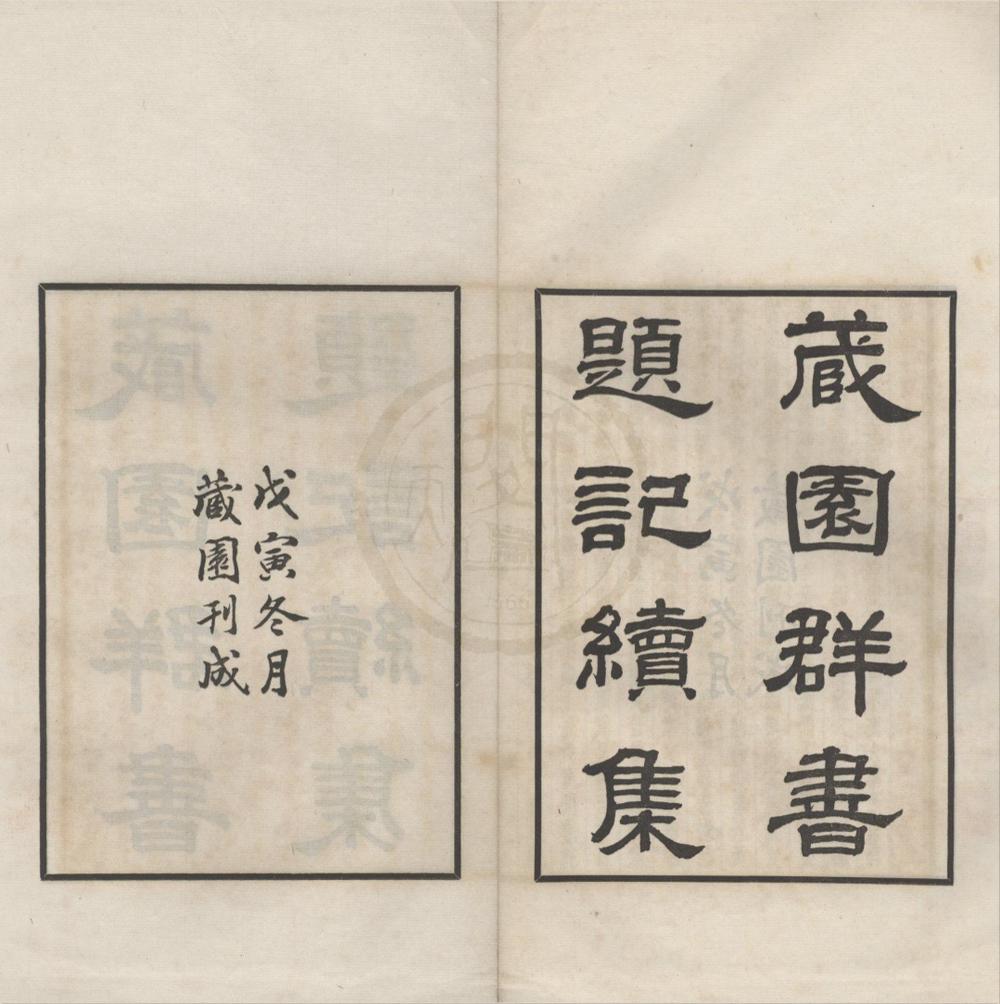 藏園群書
題記續集
戊寅冬月
藏園刊成